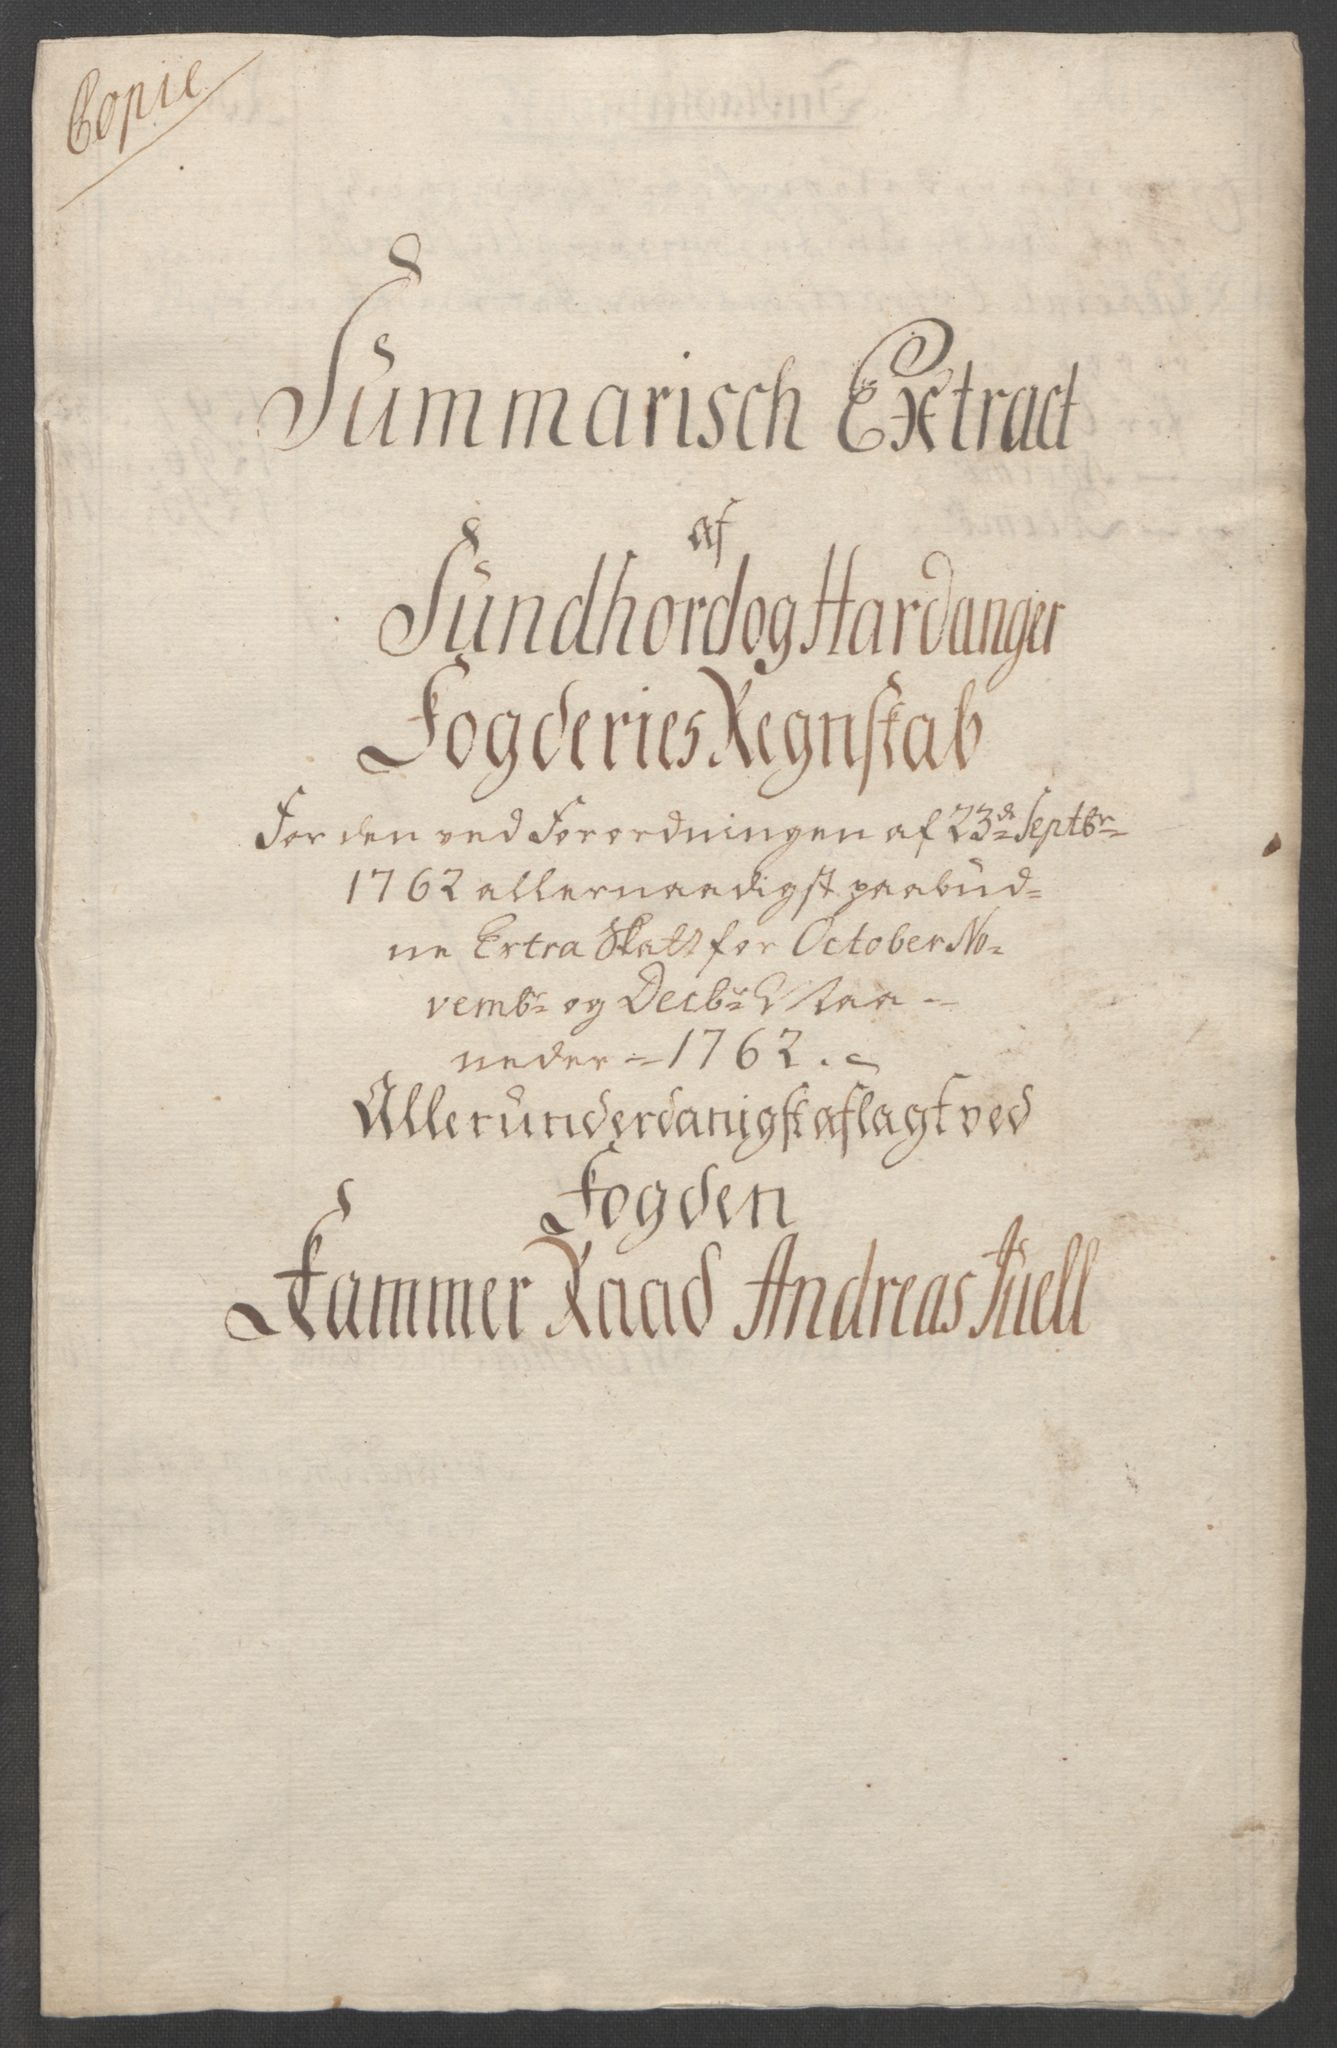 Copie
Summarisch Extract
af
Sundhord og Hardanger
Fogderies Regnskab
For den ved Forordningen af 23de Septbr
1762 allernaadigst paabud=
ne Extra Skatt for October No=
vembr og Decbr Maa=
neder 1762.
Allerunderdanigst aflagt ved
Fogden
Kammer Raad Andreas Juell